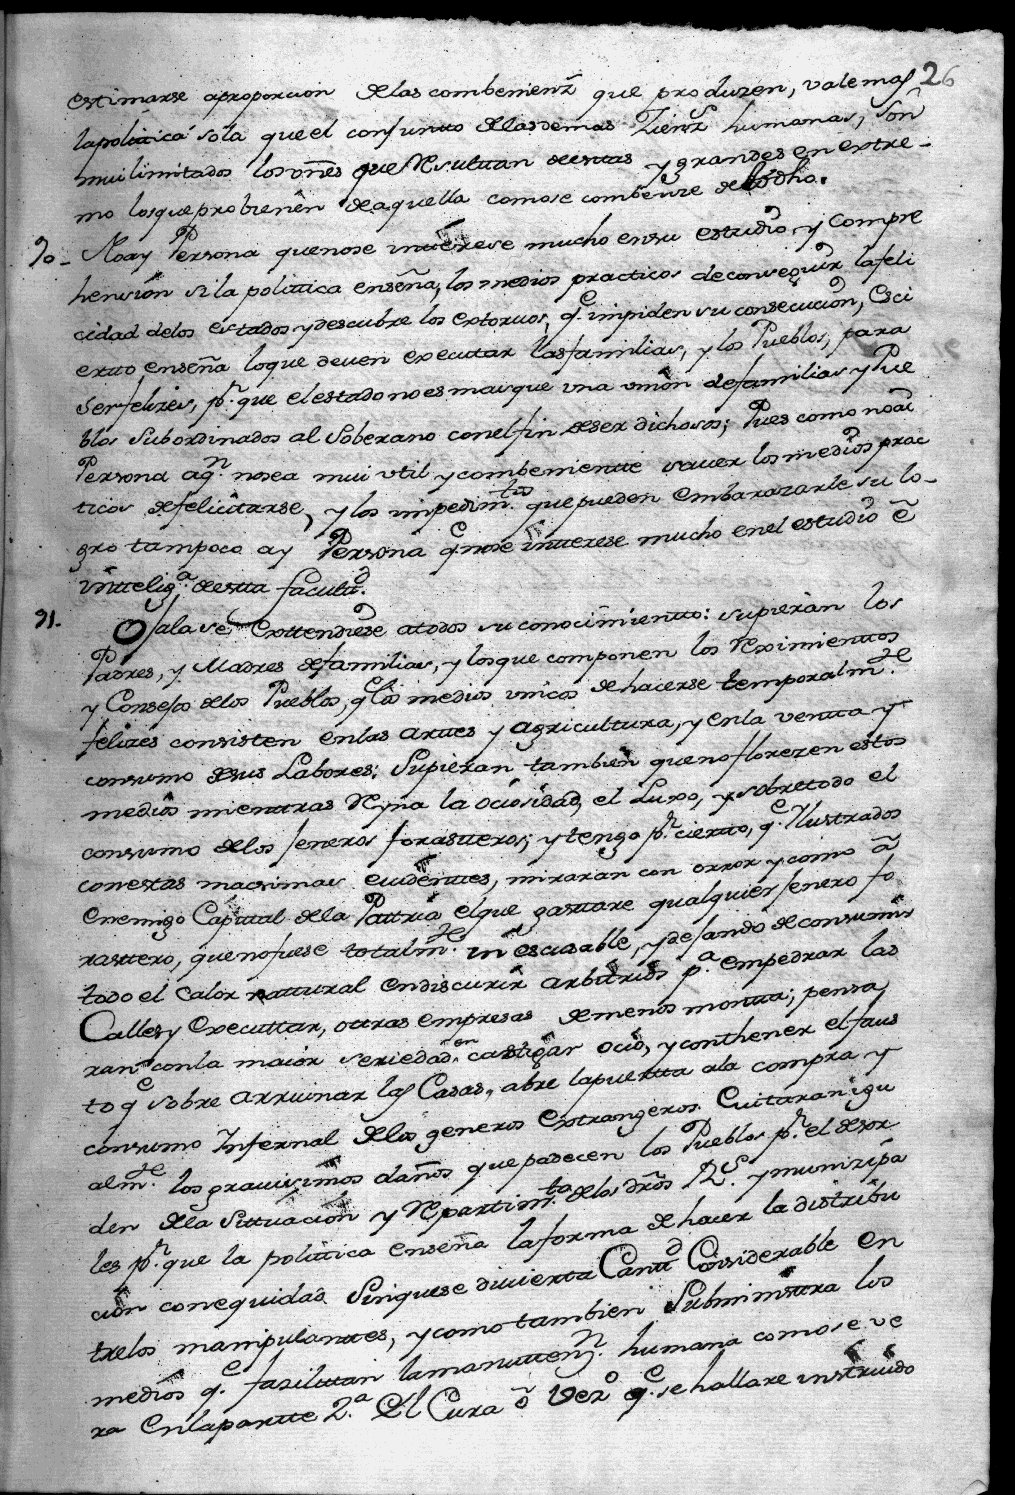 26
estimarse aproporcion delas combenienz.s que produzen, vale mas
la politica sola que el conjunto delas demas Zienz.s humanas, son
mui limitados los vn̄es que Resultan destas y grandes en extre-
mo los que probienen de aquella como se combenze delo dho.
90- No ay Persona que no se interese mucho en su estudio, y compre
hension si la politica enseña, los medios practicos de conseguir la feli
cidad delos estados y descubre los extorvos, q.e impiden su consecucion, Esci
erto, enseña lo que deven executar las familias, y los Pueblos, para
ser felizes, p.r que el estado no es mas que vna vnion de familias y Pue
blos subordinados al Soberano con el fin de ser dichosos; Pues como no ai
Persona aq.n no sea mui vtil y combeniente saver los medios prac
ticos de felicitarse, y los impedim.tos que pueden embarazarle su lo-
gro tampoco ay Persona q.e no se interese mucho en el estudio ē
intelig.a desta facult.d
91- Ojala se extendiese atodos su conocimiento: supieran los
Padres, y Madres de familias, y los que componen los Reximientos
y Consejo delos Pueblos, q.e los medios vnicos de hacerse temporalm.te
felizes consisten en las artes y agricultura, y en la venta y
consumo de sus Labores: Supieran tambien que no florezen estos
medios mientras Reyna la ociosidad, el Luxo, y sobre todo el
consumo delos jeneros forasteros; y tengo p.r cierto, q.e Ilustrados
con estas macsimas evidentes, miraran con orror y como ā
enemigo Capital dela Patria el que gastare qualquier jenero fo
rastero, que no fuese totalm.te in escusable, y dejando de consumir
todo el calor natural en discurir arbitrios p.a empedrar las
Calles y executar, otras empresas de menos monta; pensa
ran con la maior seriedad en castigar ocio, y conthener el faus
to q.e sobre arruinar las Casas, abre la puerta ala compra y
consumo Infernal delos generos Extrangeros. Evitaran igu
alm.te los gravisimos daños que padecen los Pueblos p.r el desor
den dela Situacion y Repartim.to delos dr̄os R.s y munizipa
les p.r que la politica enseña la forma de hacer la distribu
cion con equidad sin que se divierta Cant.d Considerable en
tre los manipulantes, y como tambien Subministra los
medios q.e fazilitan la manutenz.n humana como se ve
ra en la parte 2.a El Cura ō Vez.o q.e se hallare instruido